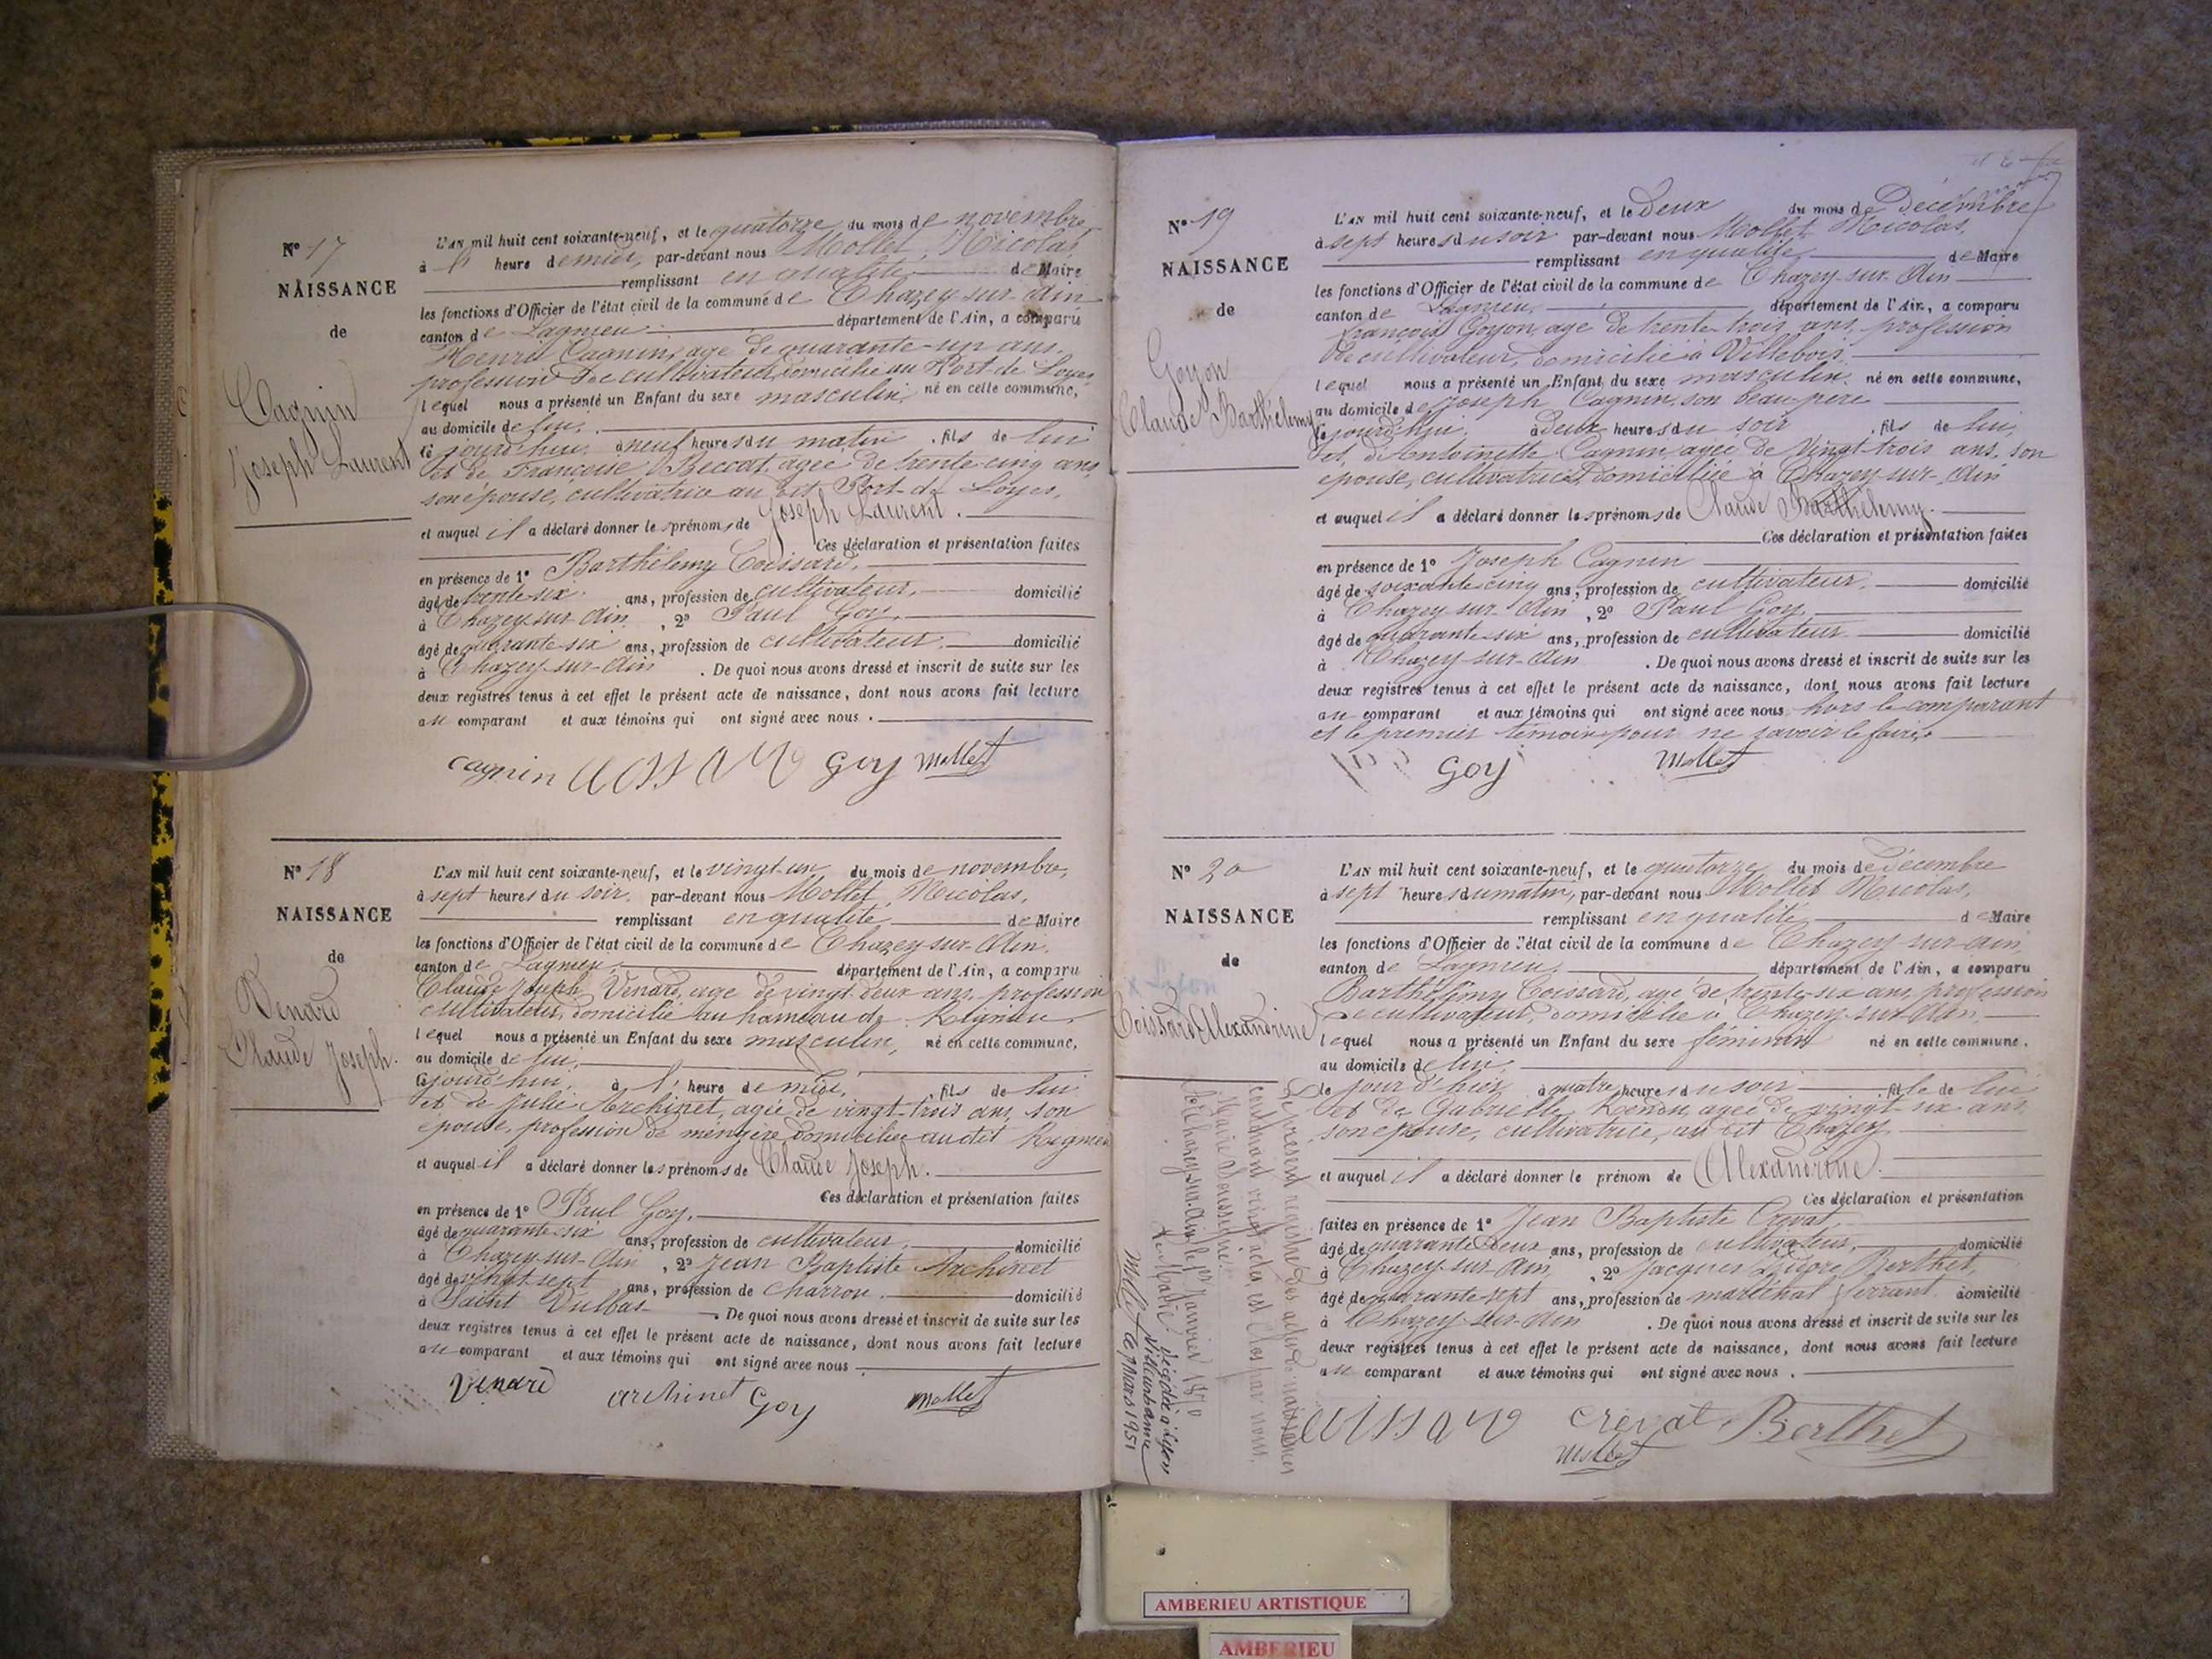 N° 17
NAISSANCE
de
Cagnin
Joseph Laurent
L'AN mil huit cent soixante-neuf, et le quatorze du mois de novembre
à l' heure de midi, par-devant nous Mollet, Nicolas,
remplissant en qualité de Maire
les fonctions d'Officier de l'état civil de la commune de Chazey-sur-Ain
canton de Lagnieu département de l'Ain, a comparu
Henri Cagnin, agé de quarante-un ans,
profession de cultivateur, domicilié au Port de Loyes
lequel nous a présenté un Enfant du sexe masculin, né en cette commune,
au domicile de lui,
ce jourd'hui, à neuf heures du matin, fils de lui
et de Françoise agée de trente-cinq ans,
son épouse, cultivatrice au dit Port-de Loyes,
et auquel il a déclaré donner les prénoms de Joseph Laurent.
Ces déclaration et présentation faites
en présence de 1° Barthélemy Coissard,
âgé de trente-six ans, profession de cultivateur, domicilié
à Chazey-sur-Ain, 2° Paul Goy,
âgé de quarante-six ans, profession de cultivateur, domicilié
à Chazey-sur-Ain. De quoi nous avons dressé et inscrit de suite sur les
deux registres tenus à cet effet le présent acte de naissance, dont nous avons fait lecture
au comparant et aux témoins qui ont signé avec nous.
cagnin coissard goy Mollet
N° 18
NAISSANCE
de
Venard
Claude Joseph.
L'AN mil huit cent soixante-neuf, et le vingt-un du mois de novembre,
à sept heures du soir, par-devant nous Mollet, Nicolas,
remplissant en qualité de Maire
les fonctions d'Officier de l'état civil de la commune de Chazey-sur-Ain.
canton de Lagnieu, département de l'Ain, a comparu
Claude Joseph Venard, agé de vingt-deux ans, profession
cultivateur, domicilié au hameau de Rignieu,
lequel nous a présenté un Enfant du sexe masculin, né en cette commune,
au domicile de lui,
ce jourd'hui, à l' heure de midi, fils de lui
et de Julie Archinet, agée de vingt-trois ans, son
épouse, profession de ménagère domiciliée audit Rignieu
et auquel il a déclaré donner les prénoms de Claude Joseph.
Ces déclaration et présentation faites
en présence de 1° Paul Goy,
âgé de quarante-six ans, profession de cultivateur, domicilié
à Chazey-sur-Ain, 2° Jean Baptiste Archinet
âgé de vingt-sept ans, profession de charron. domicilié
à Saint Vulbas. De quoi nous avons dressé et inscrit de suite sur les
deux registres tenus à cet effet le présent acte de naissance, dont nous avons fait lecture
au comparant et aux témoins qui ont signé avec nous.
Venard archinet Goy Mollet
N° 19
NAISSANCE
de
Goyon
Claude Barthélemy
L'AN mil huit cent soixante-neuf, et le deux du mois de Décembre
à sept heures du soir par-devant nous Mollet, Nicolas,
remplissant en qualité de Maire
les fonctions d'Officier de l'état civil de la commune de Chazey-sur-Ain
canton de Lagnieu, département de l'Ain, a comparu
François Goyon, agé de trente-trois ans, profession
de cultivateur, domicilié à Villebois,
lequel nous a présenté un Enfant du sexe masculin, né en cette commune,
au domicile de Joseph Cagnin, son beau-père
ce jourd'hui, à deux heures du soir, fils de lui,
et d'Antoinette Cagnin, agée de vingt-trois ans, son
épouse, cultivatrice, domiciliée à Chazey-sur-Ain
et auquel il a déclaré donner les prénoms de Claude Barthélemy.
Ces déclaration et présentation faites
en présence de 1° Joseph Cagnin
âgé de soixante-cinq ans, profession de cultivateur, domicilié
à Chazey-sur-Ain, 2° Paul Goy,
âgé de quarante-six ans, profession de cultivateur domicilié
à Chazey-sur-Ain. De quoi nous avons dressé et inscrit de suite sur les
deux registres tenus à cet effet le présent acte de naissance, dont nous avons fait lecture
au comparant et aux témoins qui ont signé avec nous hors le comparant
et le premier témoin pour ne savoir le faire.
Goy Mollet
N° 20
NAISSANCE
de
Coissard Alexandrine
L'AN mil huit cent soixante-neuf, et le quatorze du mois de Décembre
à sept heures du matin, par-devant nous Mollet Nicolas,
remplissant en qualité de Maire
les fonctions d'Officier de l'état civil de la commune de Chazey-sur-Ain
canton de Lagnieu, département de l'Ain, a comparu
Barthélemy Coissard, agé de trente-six ans, profession
de cultivateur, domicilié à Chazey-sur-Ain,
lequel nous a présenté un Enfant du sexe féminin né en cette commune,
au domicile de lui,
le jour d'hier à quatre heures du soir fille de lui
et de Gabrielle Rendu, agée de vingt-six ans,
son épouse, cultivatrice, au dit Chazey,
et auquel il a déclaré donner le prénom de Alexandrine.
Ces déclaration et présentation
faites en présence de 1° Jean Baptiste Crevat,
âgé de quarante-deux ans, profession de cultivateur, domicilié
à Chazey-sur-Ain, 2° Jacques Berthet,
âgé de quarante-sept ans, profession de maréchal ferrant domicilié
à Chazey-sur-Ain. De quoi nous avons dressé et inscrit de suite sur les
deux registres tenus à cet effet le présent acte de naissance, dont nous avons fait lecture
au comparant et aux témoins qui ont signé avec nous.
coissard crevat Berthet
Mollet
Le présent registre des actes de naissances
contenant vingt actes est clos par nous,
Maire soussigné.
à Chazey-sur-Ain le 1er janvier 1870
Le Maire
Mollet
Décédée à Lyon
Villeurbanne
le mars 1951
AMBERIEU ARTISTIQUE
AMBERIEU